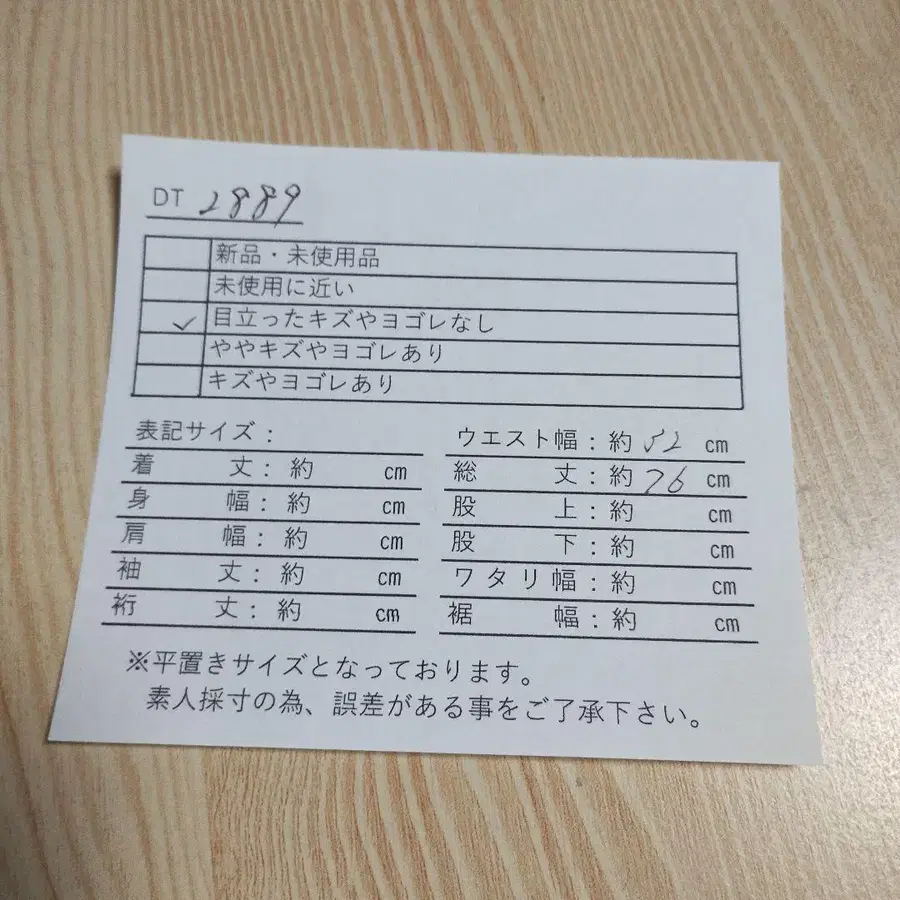 DT 2889
新品・未使用品
未使用に近い
✓ 目立ったキズやヨゴレなし
ややキズやヨゴレあり
キズやヨゴレあり
表記サイズ：
着丈：約 cm
身幅：約 cm
肩幅：約 cm
袖丈：約 cm
裄丈：約 cm
ウエスト幅：約 52 cm
総丈：約 76 cm
股上：約 cm
股下：約 cm
ワタリ幅：約 cm
裾幅：約 cm
※平置きサイズとなっております。
素人採寸の為、誤差がある事をご了承下さい。